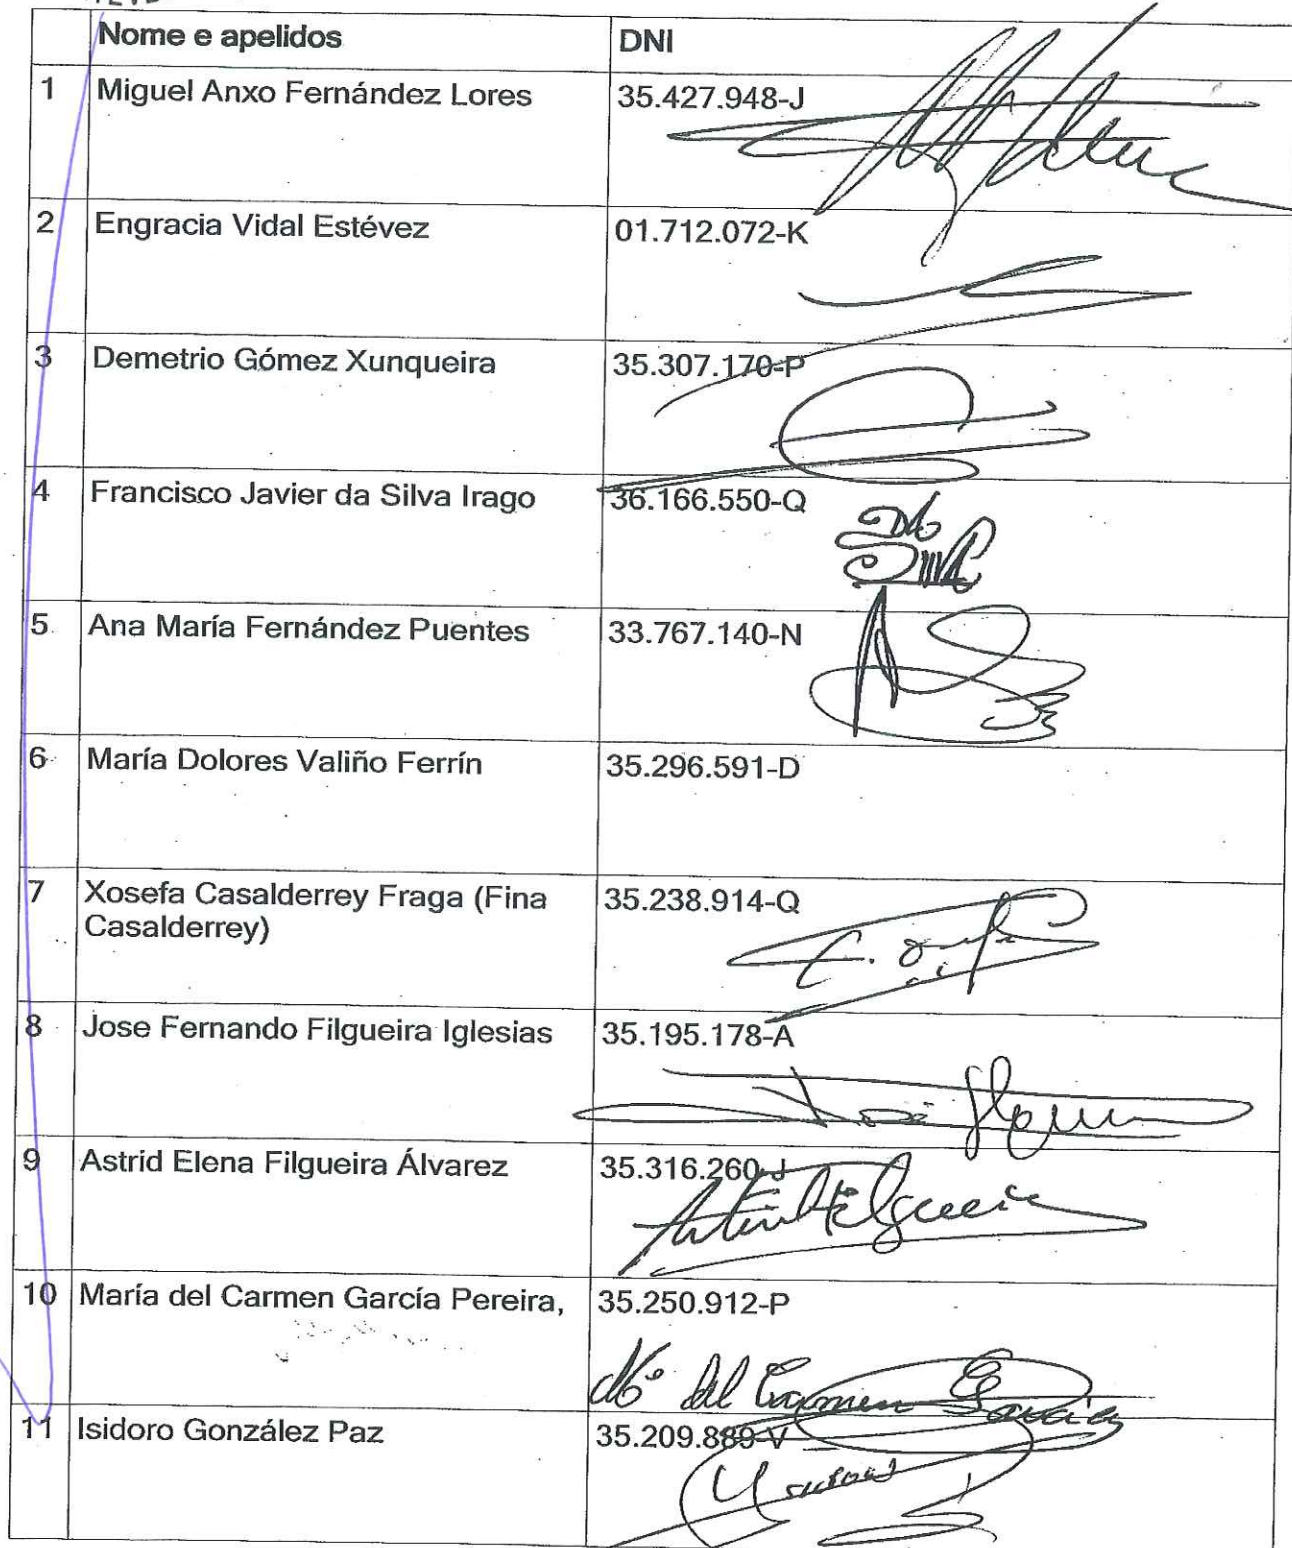 Nome e apelidos DNI
1 Miguel Anxo Fernández Lores 35.427.948-J
2 Engracia Vidal Estévez 01.712.072-K
3 Demetrio Gómez Xunqueira 35.307.170-P
4 Francisco Javier da Silva Irago 36.166.550-Q
5 Ana María Fernández Puentes 33.767.140-N
6 María Dolores Valiño Ferrín 35.296.591-D
7 Xosefa Casalderrey Fraga (Fina 35.238.914-Q
Casalderrey)
8 Jose Fernando Filgueira Iglesias 35.195.178-A
9 Astrid Elena Filgueira Álvarez 35.316.260-J
10 María del Carmen García Pereira, 35.250.912-P
Mª del Carmen García
11 Isidoro González Paz 35.209.889-V